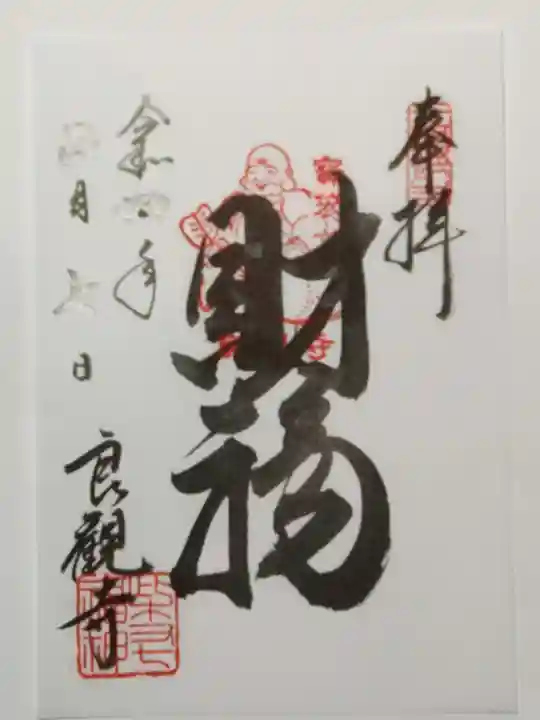 奉拝
財福
令和四年
四月七日
良観寺